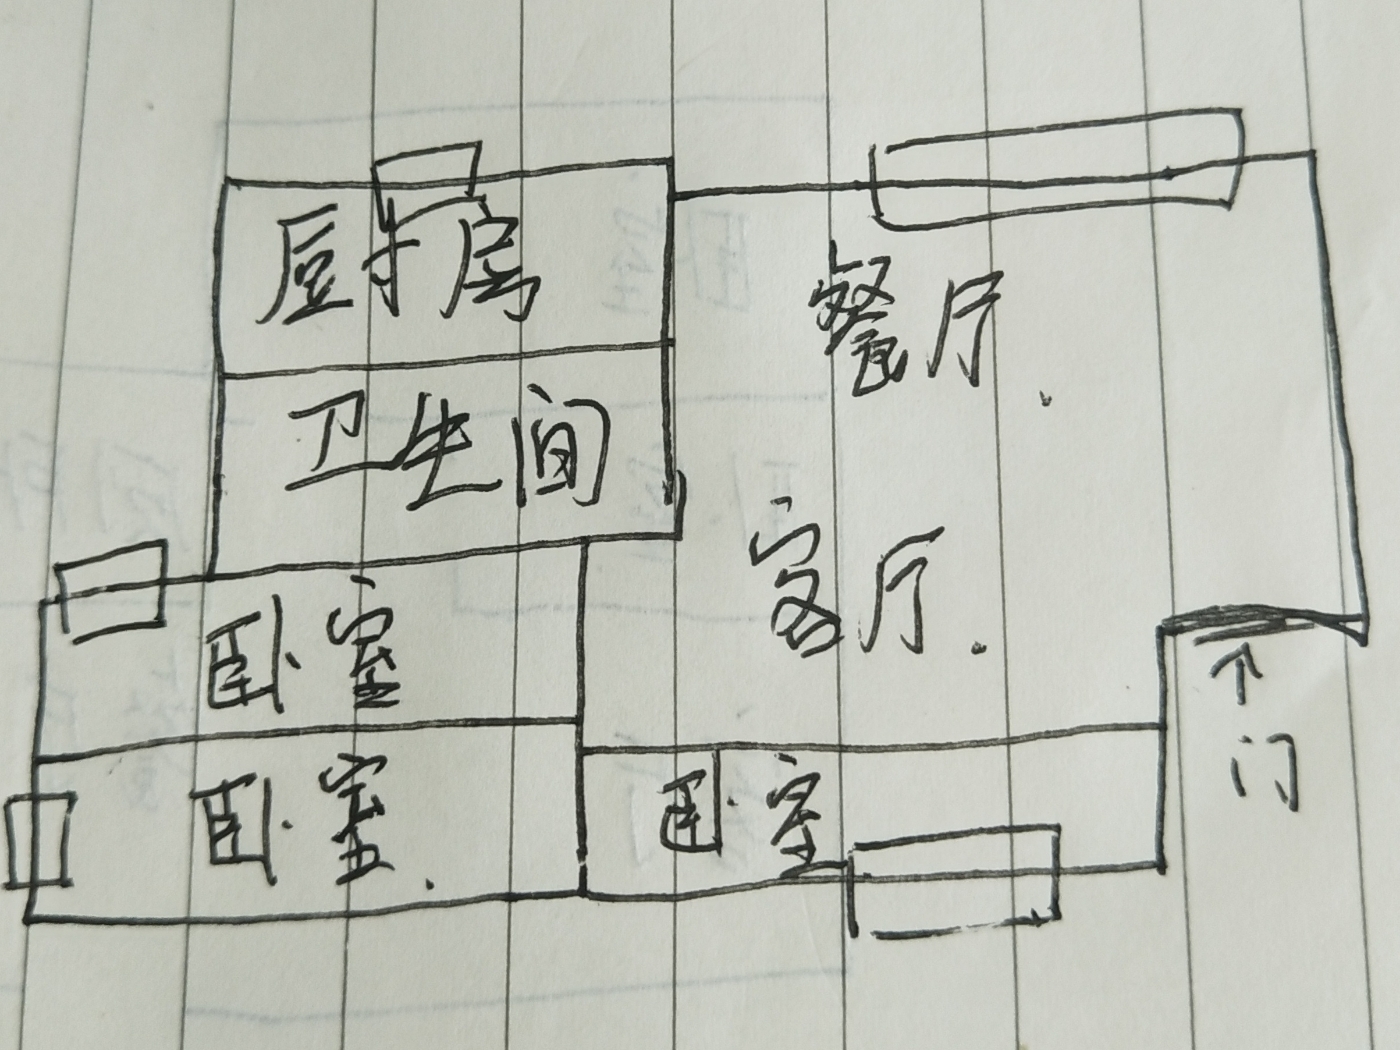 厨房
餐厅
卫生间
客厅
卧室
门
卧室
卧室